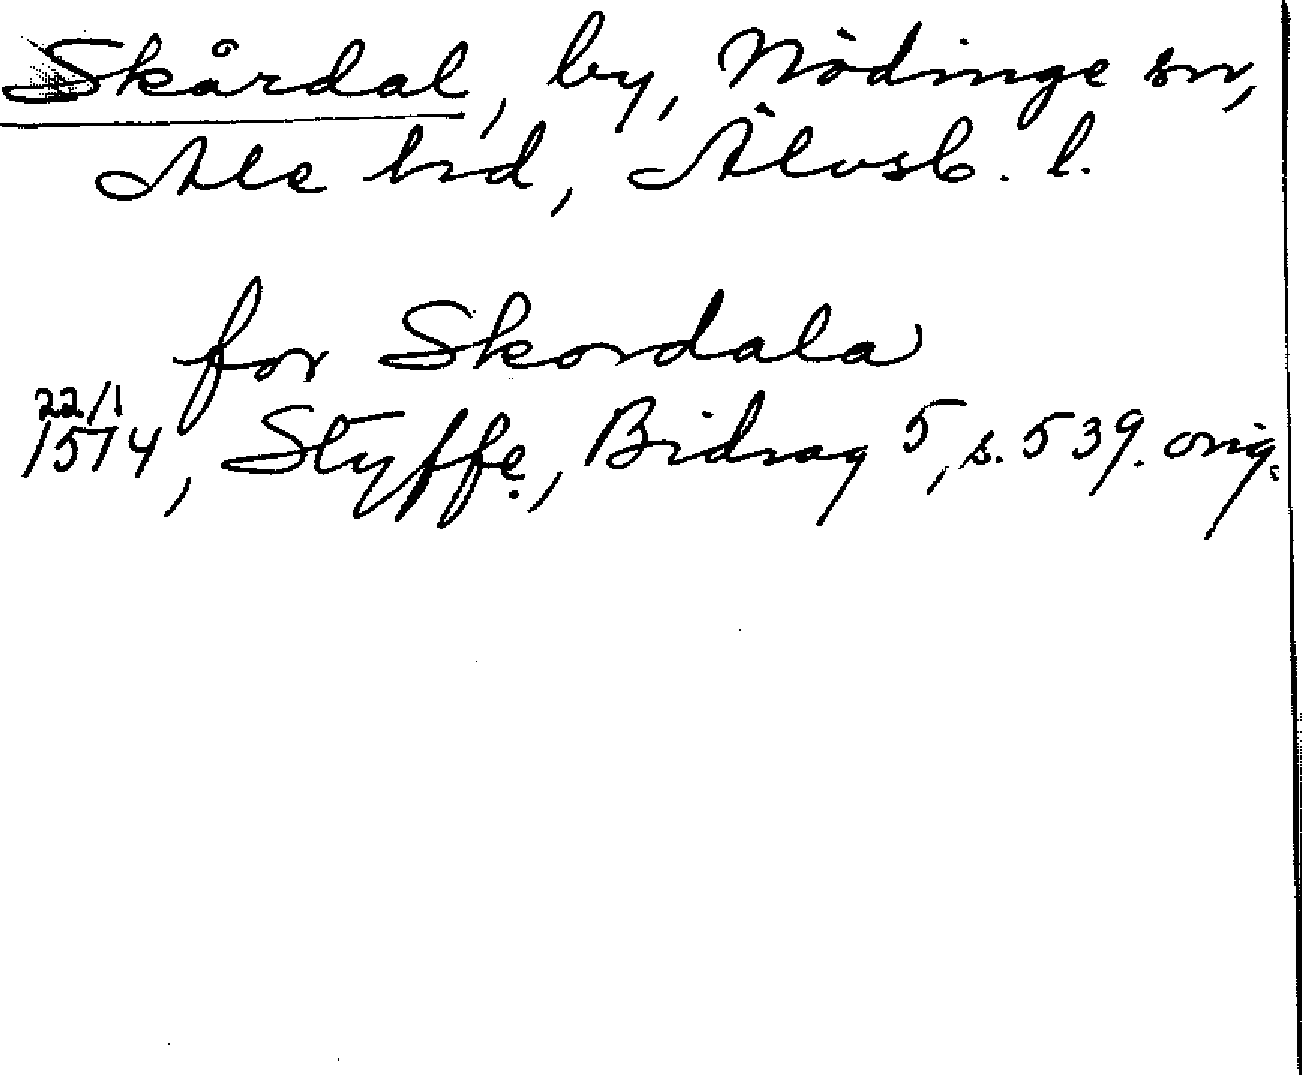 Skårdal, by, Nödinge sn,
Ale hd, Älvsb. l.
for Skordala
22/1
1514, Styffe, Bidrag 5, s. 539. orig.